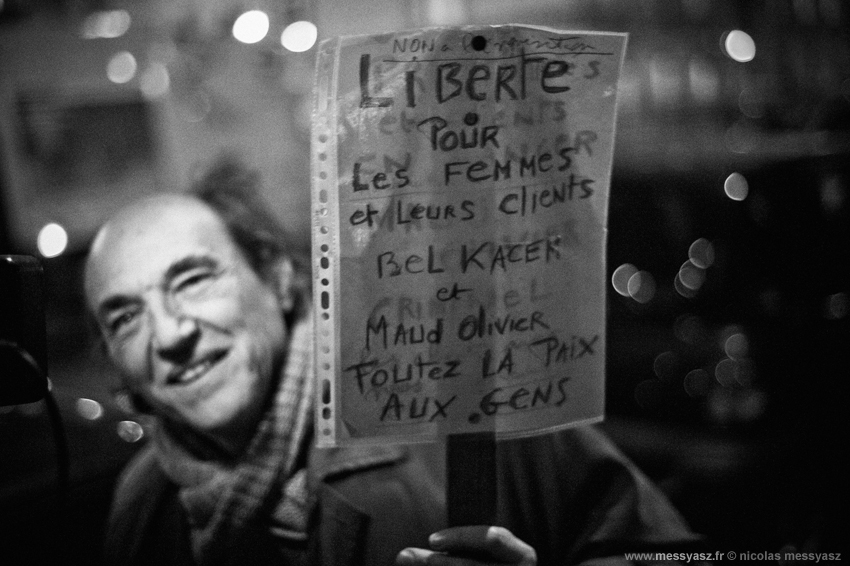 NON à
LIBERTE
POUR
Les FEMMES
et Leurs clients
BeL KACEM
et
MAUD OLIVIER
FOUTEZ LA PAIX
AUX GENS
www.messyasz.fr © nicolas messyasz